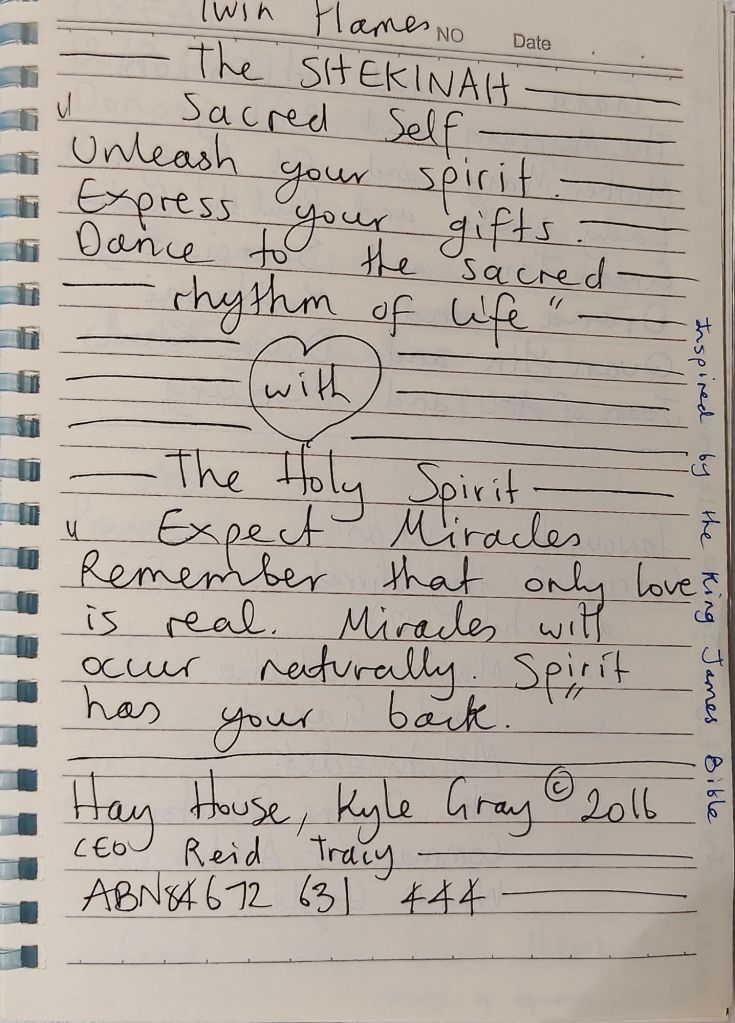 Twin Flames
NO Date
The SHEKINAH
" Sacred Self
Unleash your spirit.
Express your gifts.
Dance to the sacred
rhythm of life"
with
The Holy Spirit
" Expect Miracles
Remember that only love
is real. Miracles will
occur naturally. Spirit
has your back."
Hay House, Kyle Gray © 2016
CEO Reid Tracy
ABN 84 672 631 444
Inspired by the King James Bible